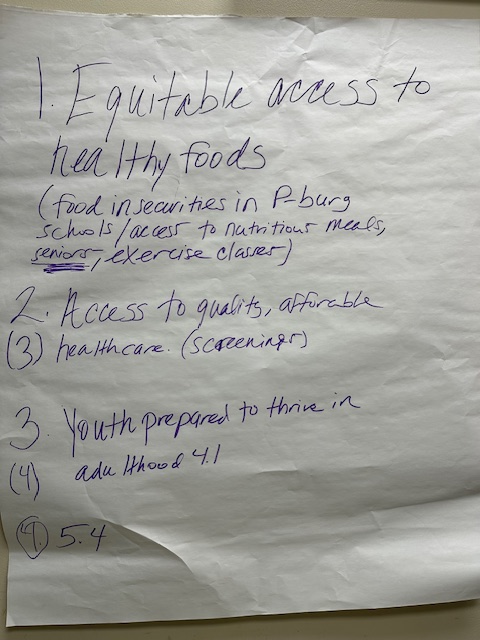 1. Equitable access to
healthy foods
(food insecurities in P-burg
schools/access to nutritious meals,
seniors, exercise classes)
2. Access to quality, afforable
(3) healthcare. (screenings)
3. Youth prepared to thrive in
(4) adulthood 4.1
4. 5.4